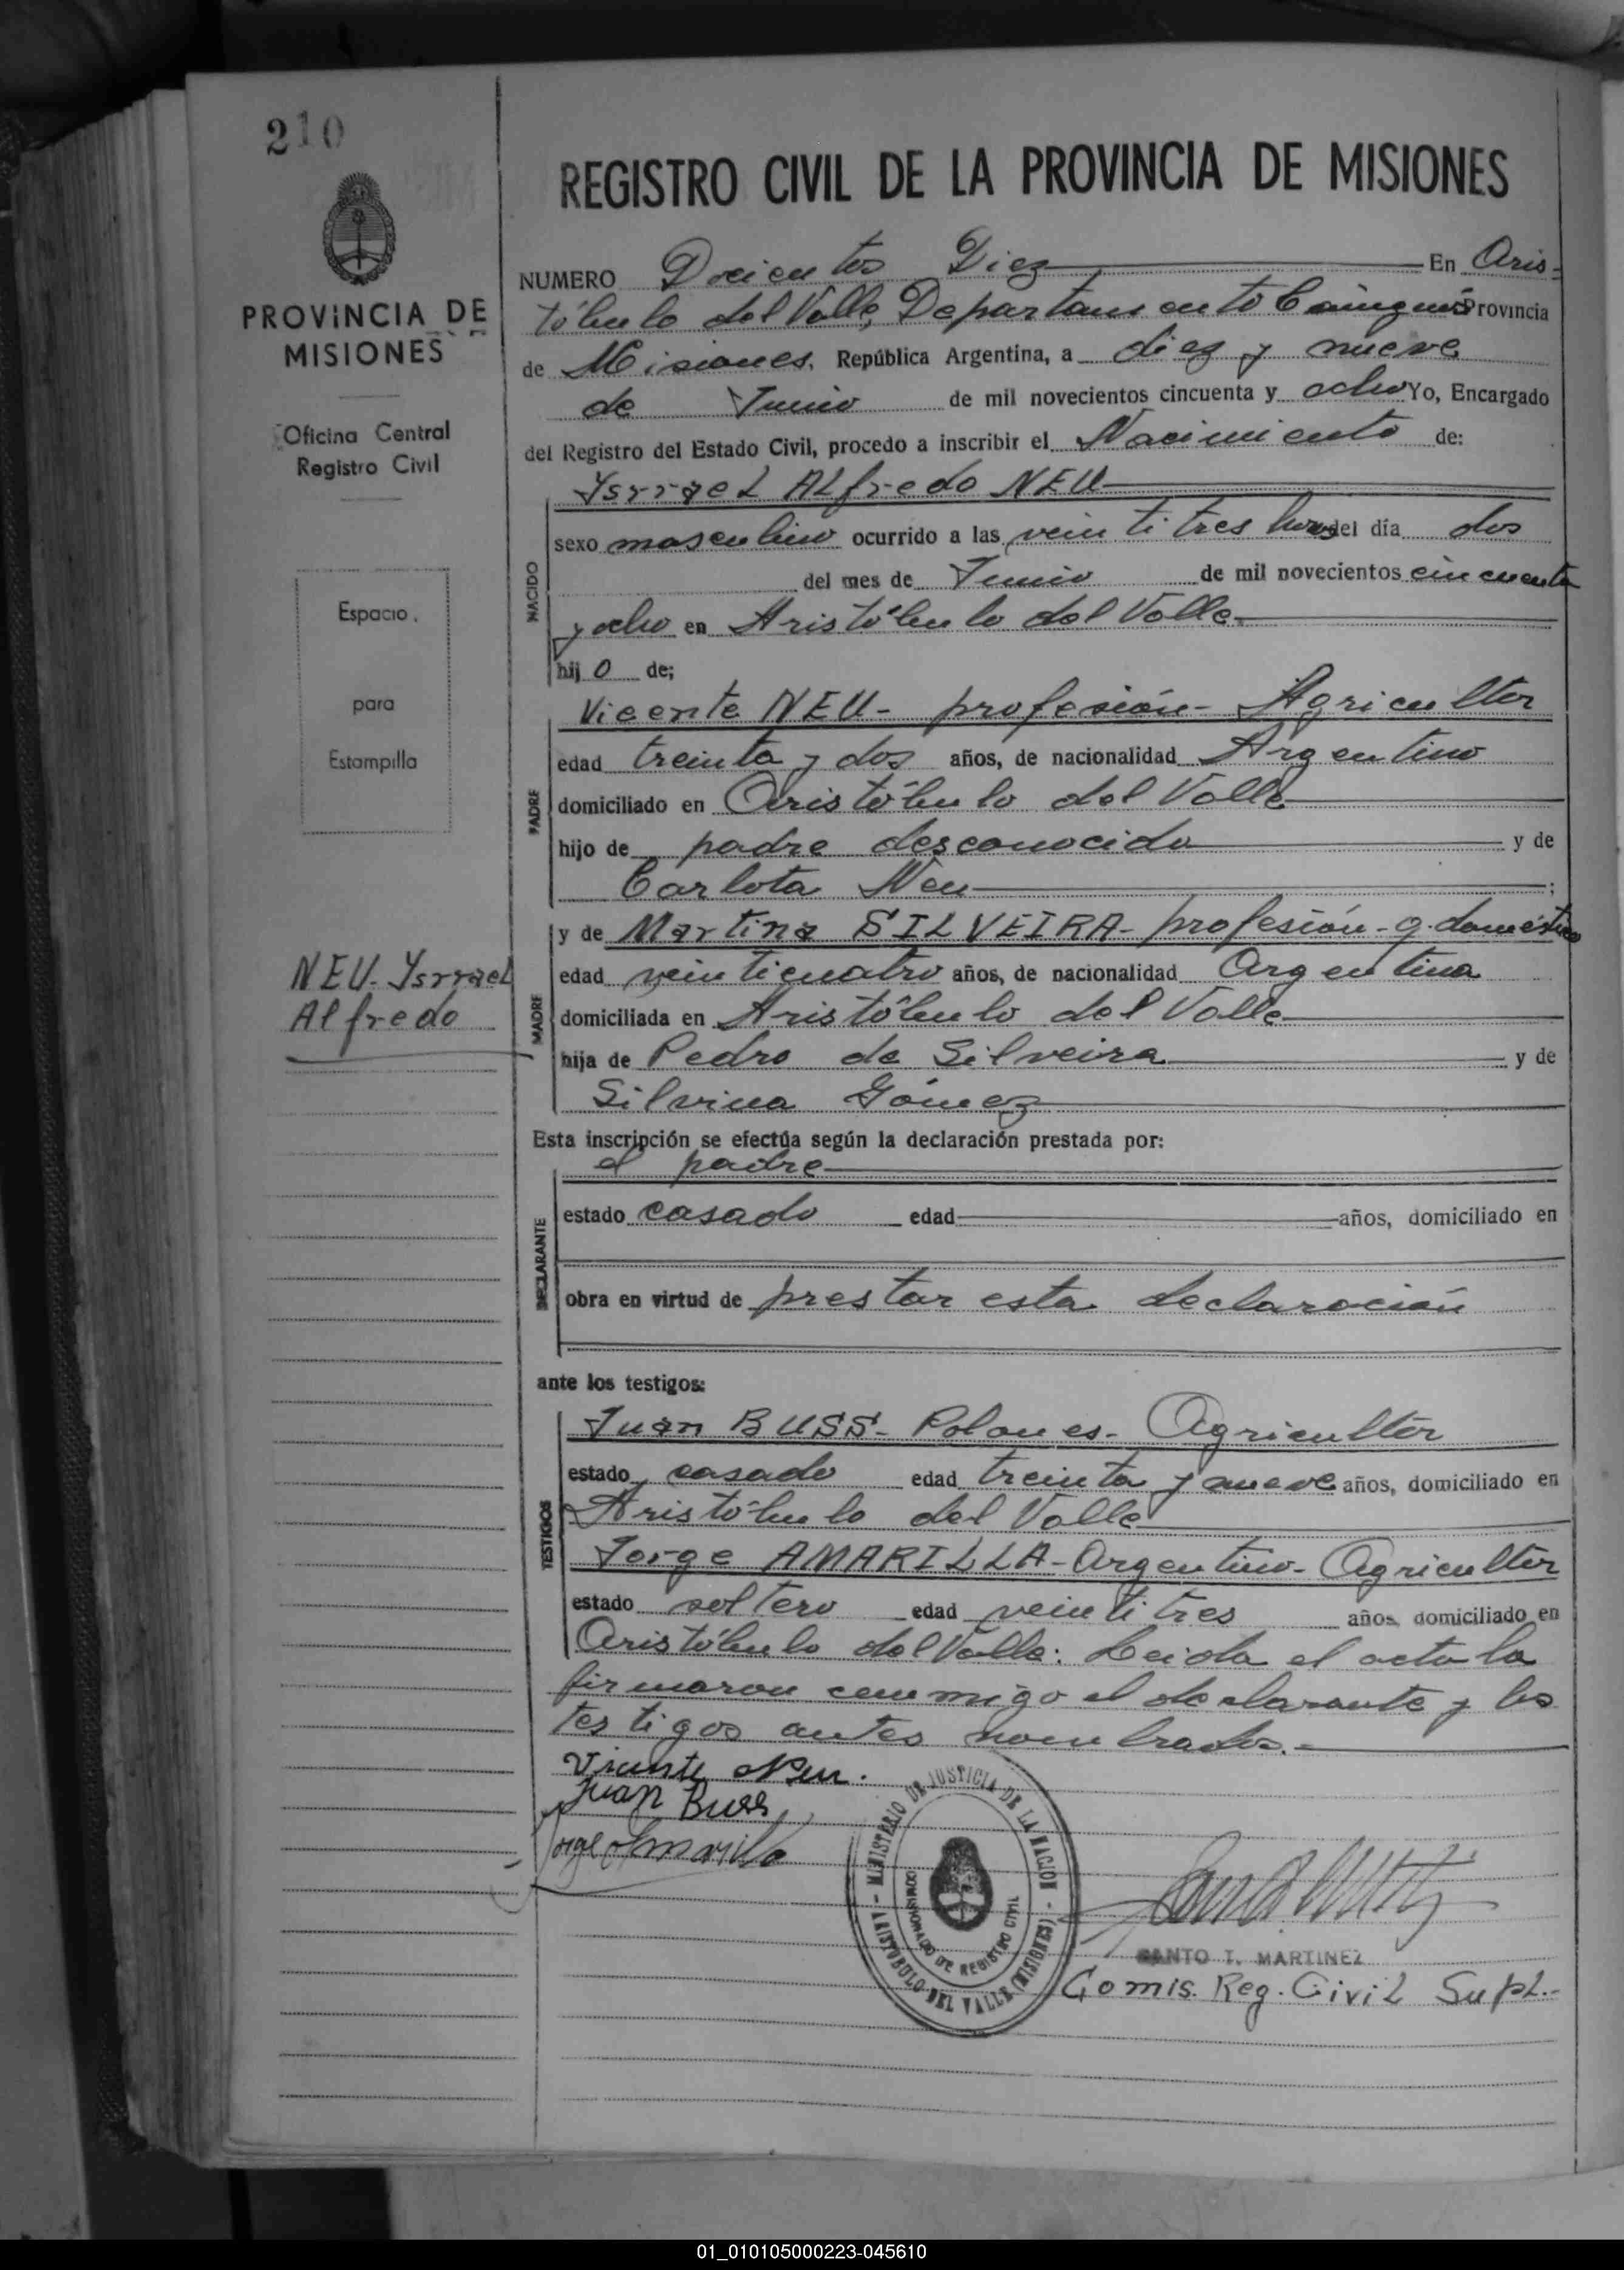 210
PROVINCIA DE
MISIONES
Oficina Central
Registro Civil
Espacio
para
Estampilla
NEU. Ysrrael
Alfredo
REGISTRO CIVIL DE LA PROVINCIA DE MISIONES
NUMERO Docientos Diez En Aris-
tóbulo del Valle, Departamento Cainguás Provincia
de Misiones, República Argentina, a diez y nueve
de Junio de mil novecientos cincuenta y ocho Yo, Encargado
del Registro del Estado Civil, procedo a inscribir el Nacimiento de:
Ysrrael Alfredo NEU
NACIDO
sexo masculino ocurrido a las veintitres horas del día dos
del mes de Junio de mil novecientos cincuenta
y ocho en Aristóbulo del Valle.
hij o de;
PADRE
Vicente NEU - profesión - Agricultor
edad treinta y dos años, de nacionalidad Argentino
domiciliado en Aristóbulo del Valle
hijo de padre desconocido y de
Carlota Neu ;
MADRE
y de Martina SILVEIRA - profesión - q. domésticos
edad veinticuatro años, de nacionalidad Argentina
domiciliada en Aristóbulo del Valle
hija de Pedro de Silveira y de
Silvina Gómez
Esta inscripción se efectúa según la declaración prestada por:
DECLARANTE
el padre
estado casado edad años, domiciliado en
obra en virtud de prestar esta declaración
ante los testigos:
TESTIGOS
Juan BUSS - Polones - Agricultor
estado casado edad treinta y nueve años, domiciliado en
Aristóbulo del Valle
Jorge AMARILLA - Argentino - Agricultor
estado soltero edad veintitres años domiciliado en
Aristóbulo del Valle: Leida el acta la
firmaron conmigo el declarante y los
testigos antes nombrados.-
Vicente Neu.
Juan Buss
Jorge Amarilla
MINISTERIO DE JUSTICIA DE LA NACION - ARISTOBULO DEL VALLE (MISIONES) -
DE REGISTRO CIVIL
SANTO T. MARTINEZ
Comis. Reg. Civil Supl.-
01_010105000223-045610